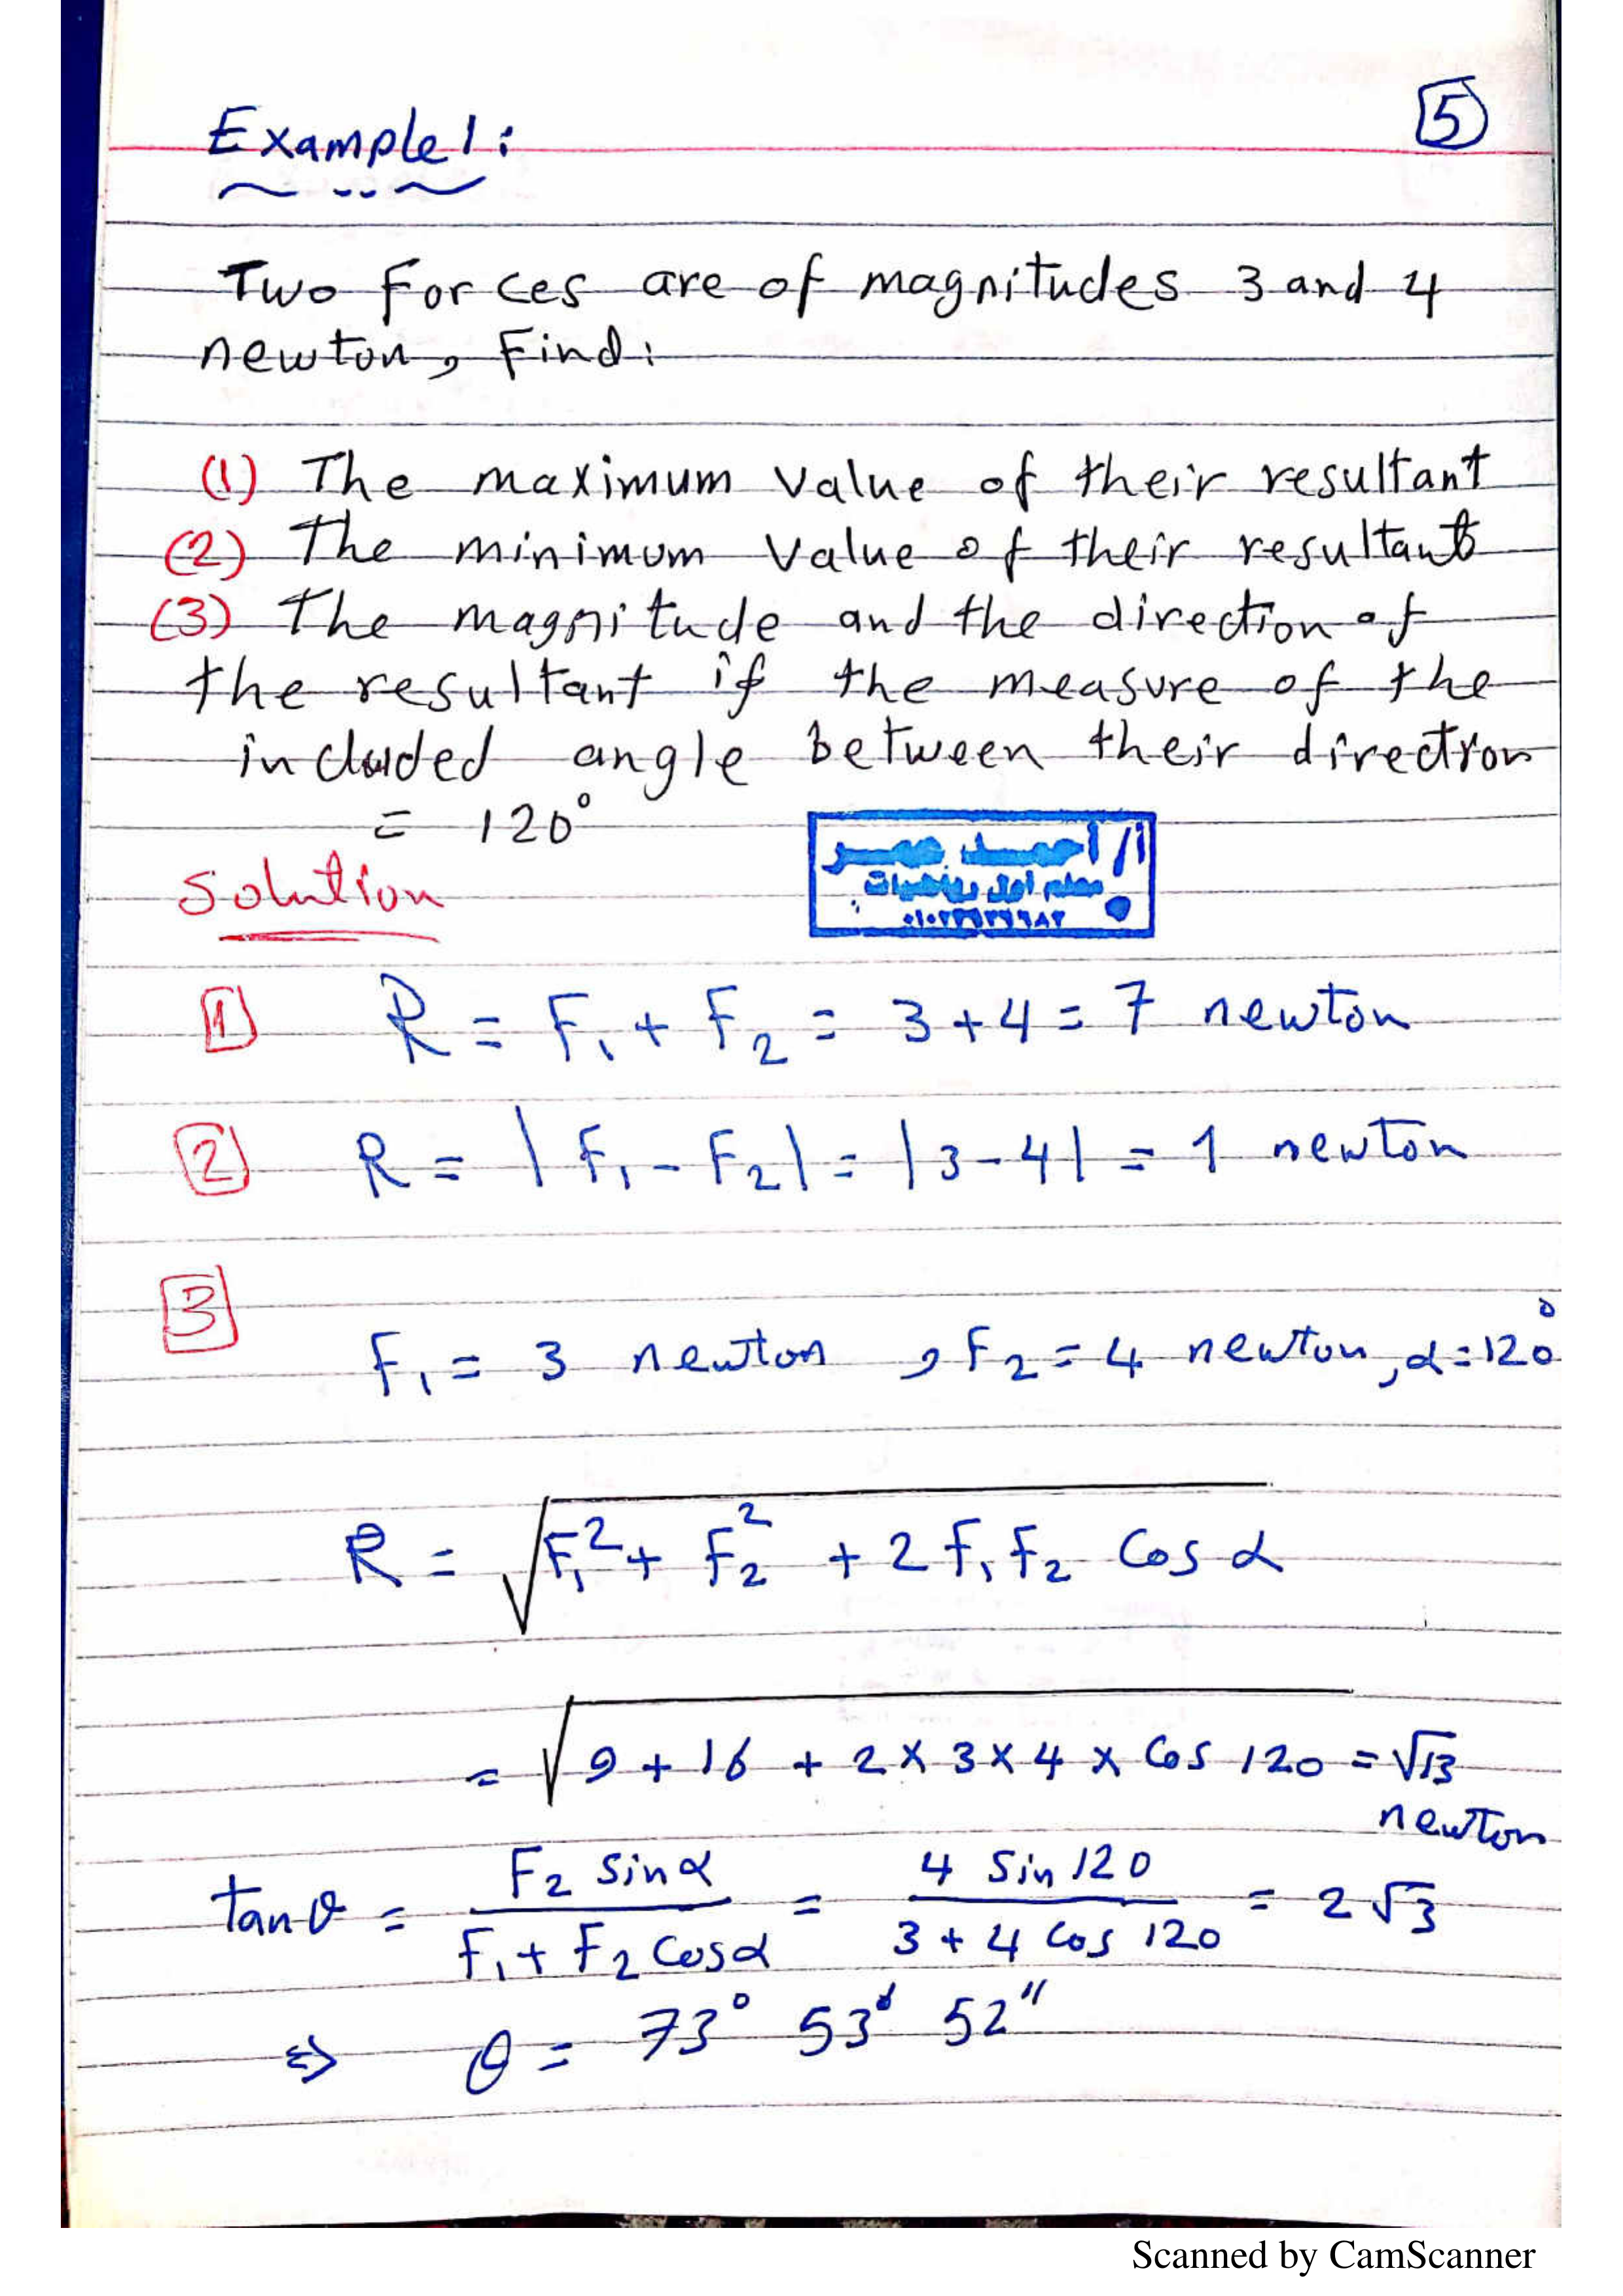 5
Example 1:
Two Forces are of magnitudes 3 and 4
newton, Find:
(1) The maximum value of their resultant
(2) The minimum value of their resultant
(3) The magnitude and the direction of
the resultant if the measure of the
included angle between their direction
= 120°
أ/ أحمد عمر
معلم أول رياضيات
Solution
1 R = F₁ + F₂ = 3 + 4 = 7 newton
2 R = |F₁ - F₂| = |3 - 4| = 1 newton
3
F₁ = 3 newton , F₂ = 4 newton, α = 120°
R = √(F₁² + F₂² + 2 F₁ F₂ Cos α)
= √(9 + 16 + 2 × 3 × 4 × Cos 120) = √13
newton
tan θ = (F₂ sin α)/(F₁ + F₂ Cos α) = (4 Sin 120)/(3 + 4 Cos 120) = 2√3
⇒ θ = 73° 53' 52"
Scanned by CamScanner